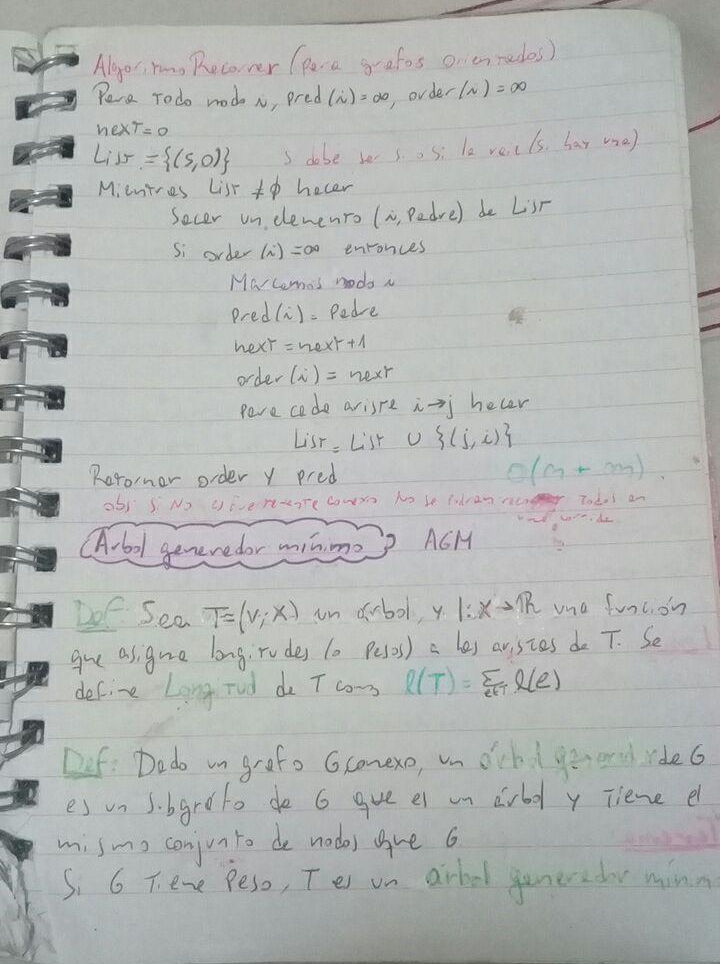 Algoritmo Recorrer (para grafos orientados)
Para Todo nodo i, pred(i)=∞, order(i)=∞
next=0
List={(s,0)}   s debe ser s. o si la raiz (si hay una)
Mientras List ≠ ∅ hacer
Sacar un elemento (i, Padre) de List
Si order(i)=∞ entonces
Marcamos nodo i
pred(i)=Padre
next=next+1
order(i)=next
para cada arista i→j hacer
List=List ∪ {(j,i)}
Retornar order y pred   O(n+m).
obs: si No es fuertemente conexo No se podran recorrer todos en
una corrida
Árbol generador mínimo   AGM
Def: Sea T=(V;X) un árbol, y l:X→ℝ una función
que asigna longitudes (o pesos) a las aristas de T. Se
define Longitud de T como l(T)=∑e∈T l(e)
Def: Dado un grafo G conexo, un árbol generador de G
es un subgrafo de G que es un árbol y Tiene el
mismo conjunto de nodos que G
Si G Tiene Peso, T es un árbol generador mínim